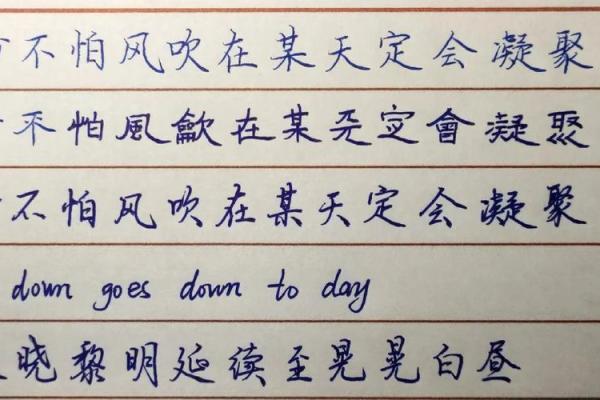 不怕风吹在某天定会凝聚
不怕風龡在某㝎會凝
不怕风吹在某天定会凝聚
down goes down to day
晓黎明延续至晃晃白昼